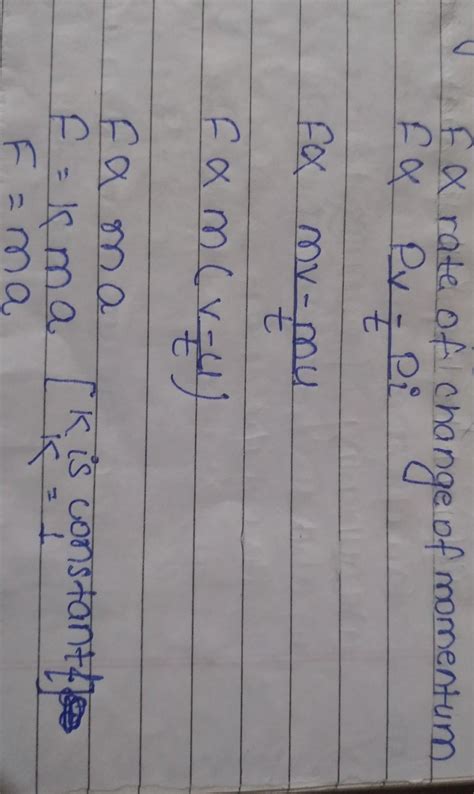 F α rate of change of momentum
F α Pv - Pi / t
F α mv - mu / t
F α m (v-u / t)
F α ma
F = K ma [K is constant &
K = 1]
F = ma